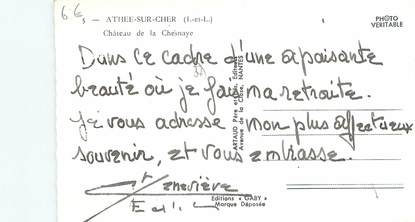 6€
5 - ATHEE-SUR-CHER (I.-et-L.)
Château de la Chesnaye
PHOTO
VERITABLE
Dans ce cadre d'une apaisante
beauté où je fais ma retraite.
Je vous adresse mon plus affectueux
souvenir, et vous embrasse.
Geneviève
ARTAUD Père et Fils, Editeurs
Avenue de la Close, NANTES
Editions "GABY"
Marque Déposée